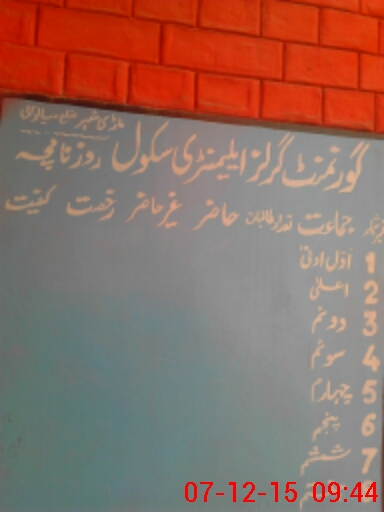 گورنمنٹ گرلز ایلیمنٹری سکول روزنامچہ
جماعت تعداد طالبات حاضر غیر حاضر رخصت کیفیت
1 اوّل ادنیٰ
2 اعلیٰ
3 دوئم
4 سوئم
5 چہارم
6 پنجم
7 ششم
07-12-15 09:44